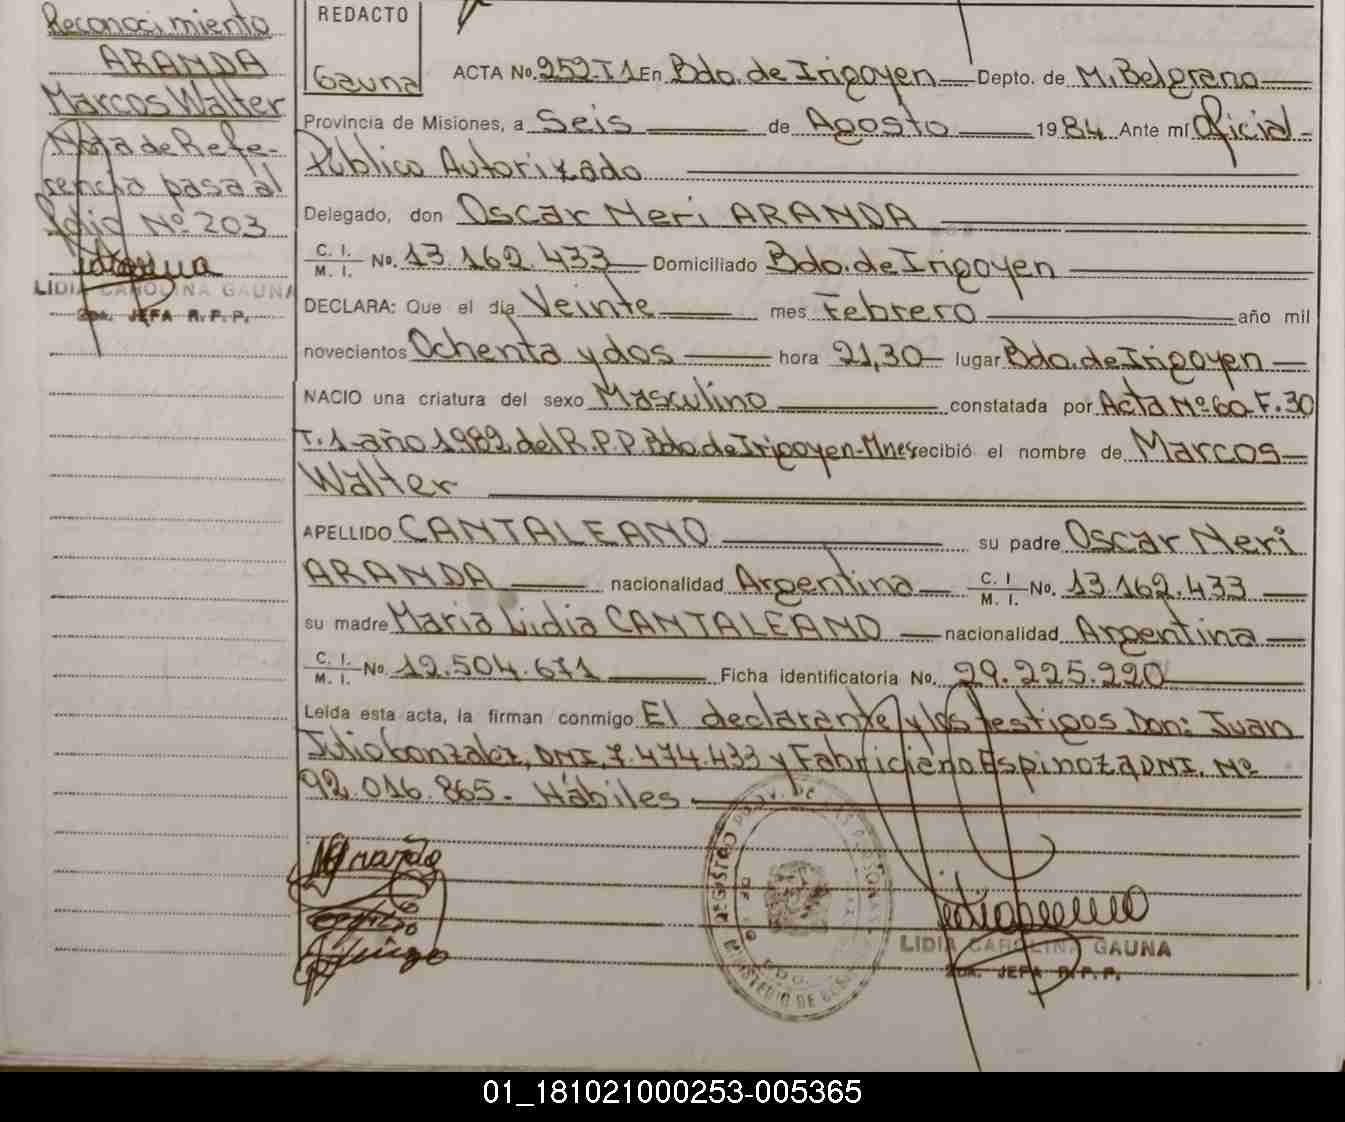 Reconocimiento
ARANDA
Marcos Walter
Nota de Refe-
rencia pasa al
folio Nº 203
LIDIA CAROLINA GAUNA
2da. JEFA R.P.P.
REDACTO
Gauna
ACTA No. 252.T1 En Bdo. de Irigoyen Depto. de M. Belgrano
Provincia de Misiones, a Seis de Agosto 1984 Ante mí Oficial
Público Autorizado
Delegado, don Oscar Neri ARANDA
C. I. / M. I. No. 13.162.433 Domiciliado Bdo. de Irigoyen
DECLARA: Que el día Veinte mes Febrero año mil
novecientos Ochenta y dos hora 21,30 lugar Bdo. de Irigoyen
NACIO una criatura del sexo Masculino constatada por Acta Nº 60 F. 30
T. 1 año 1982 del R.P.P. Bdo de Irigoyen-Mnes recibió el nombre de Marcos
Walter
APELLIDO CANTALEANO su padre Oscar Neri
ARANDA nacionalidad Argentina C. I / M. I. No. 13.162.433
su madre Maria Lidia CANTALEANO nacionalidad Argentina
C. I. / M. I. No. 12.504.671 Ficha identificatoria No. 29.225.220
Leida esta acta, la firman conmigo El declarante y los testigos Don: Juan
Julio Gonzalez, DNI. 7.474.433 y Fabriciano Espinoza DNI. Nº
92.016.865.- Hábiles
REGISTRO PROV. DE LAS PERSONAS
MINISTERIO DE GOB
LIDIA CAROLINA GAUNA
2da. JEFA R.P.P.
01_181021000253-005365